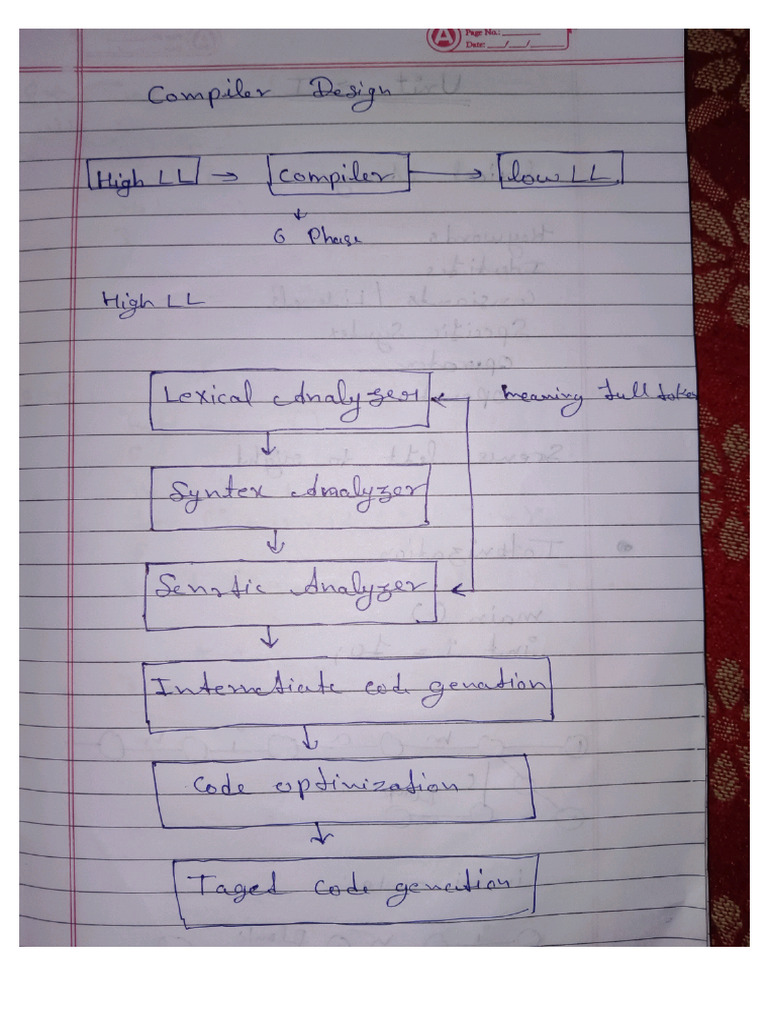 A Page No.:
Date: / /
Compiler Design
High LL → Compiler → low LL
6 Phase
High LL
Lexical Analyzer meaning full token
Syntex Analyzer
Senatic Analyzer
Intermetiate code genation
Code optinization
Taged code genention